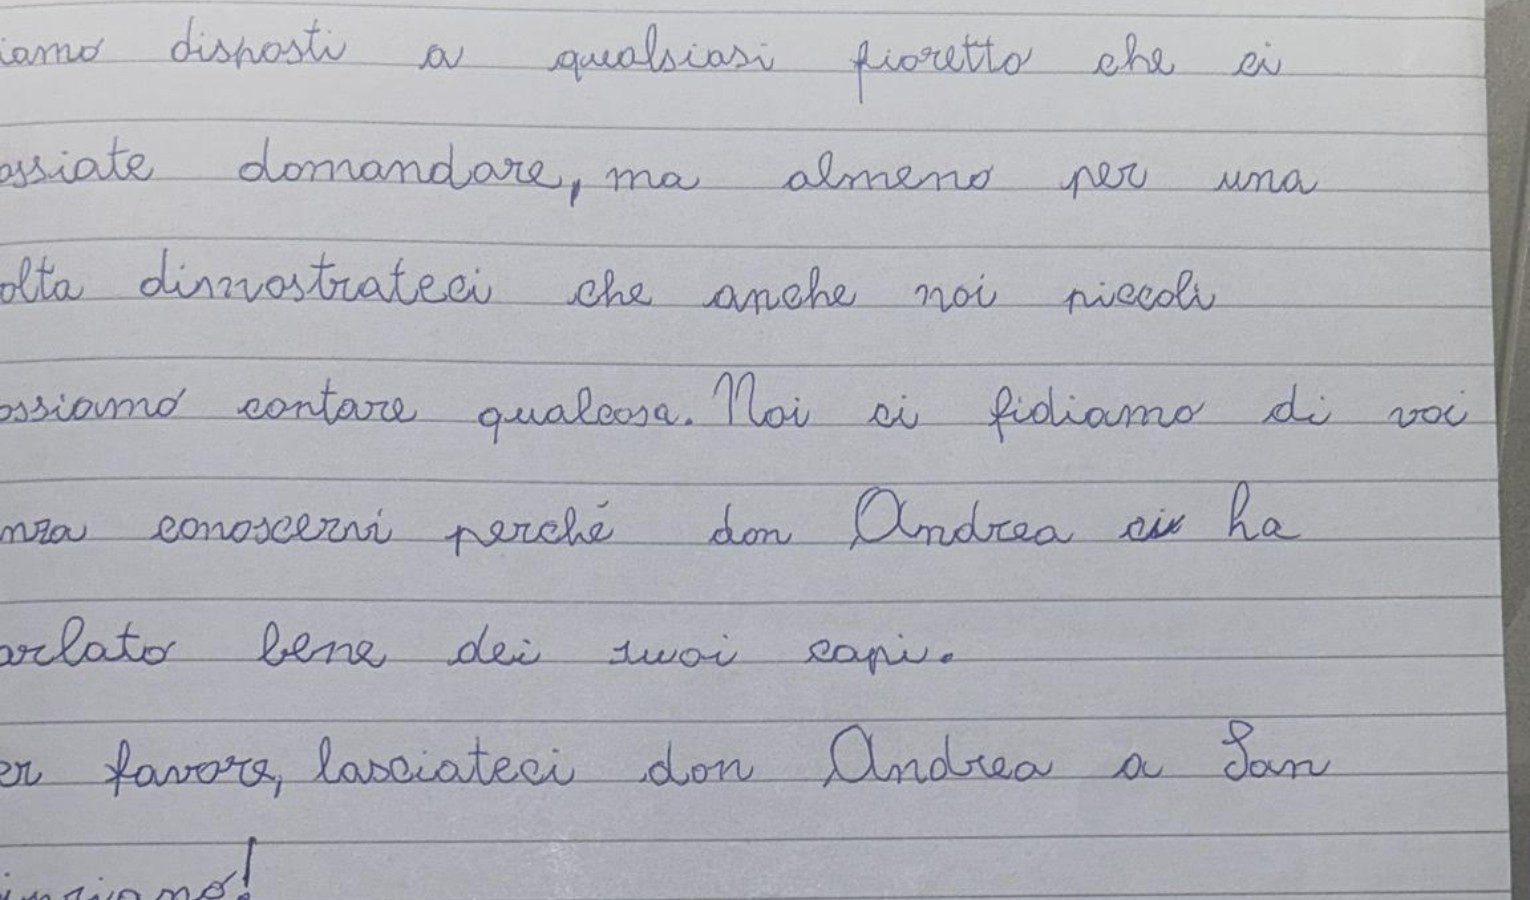 iamo disposti a qualsiasi fioretto che ci
ossiate domandare, ma almeno per una
olta dimostrateci che anche noi piccoli
ossiamo contare qualcosa. Noi ci fidiamo di voi
nza conoscervi perché don Andrea ci ha
arlato bene dei suoi capi.
er favore, lasciateci don Andrea a San